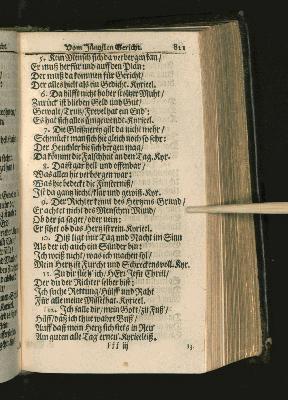 Vom Jüngsten Gericht. 811
5. Kein Mensch sich da verbergen kan/
Er muß herfür und auff den Plan:
Der muß da kommen für Gericht/
Der alles hielt als ein Gedicht. Kyrieel.
6. Da hilfft nicht hoher stoltzer Muht/
Zurück ist blieben Geld und Gut/
Gewalt/ Trutz/ Frevel hat ein End:
Es hat sich alles umgewendt. Kyrieel.
7. Die Gleißnerey gilt da nicht mehr/
Schmückt man sich hie gleich noch so sehr:
Der Heuchler hie sich bergen mag/
Da kömmt die Falschheit an den Tag. Kyr.
8. Da ist gar hell und offenbar/
Was allen hie verborgen war:
Was hie bedeckt die Finsterniß/
Ist da gantz licht/ klar und gewiß. Kyr.
9. Der Richter kennt des Hertzens Grund/
Er achtet nicht des Menschen Mund/
Ob der ja sagt/ oder nein:
Er sihet ob das Hertz ist rein. Kyrieel.
10. Diß ligt mir Tag und Nacht im Sinn
Als der ich auch ein Sünder bin:
Ich weiß nicht/ was ich machen sol/
Mein Hertz ist Furcht und Schreckens voll. Kyr.
11. Zu dir flieh ich/ HErr Jesu Christ/
Der du der Richter selber bist:
Ich suche Rettung/ Hülff und Raht
Für alle meine Missethat. Kyrieel.
12. Ich falle dir/ mein Gott/ zu Fuß/
Hilff/ daß ich thue wahre Buß/
Auff daß mein Hertz sich stets in Reu
Am guten alle Tag erneu. Kyrieeleiß.
13.